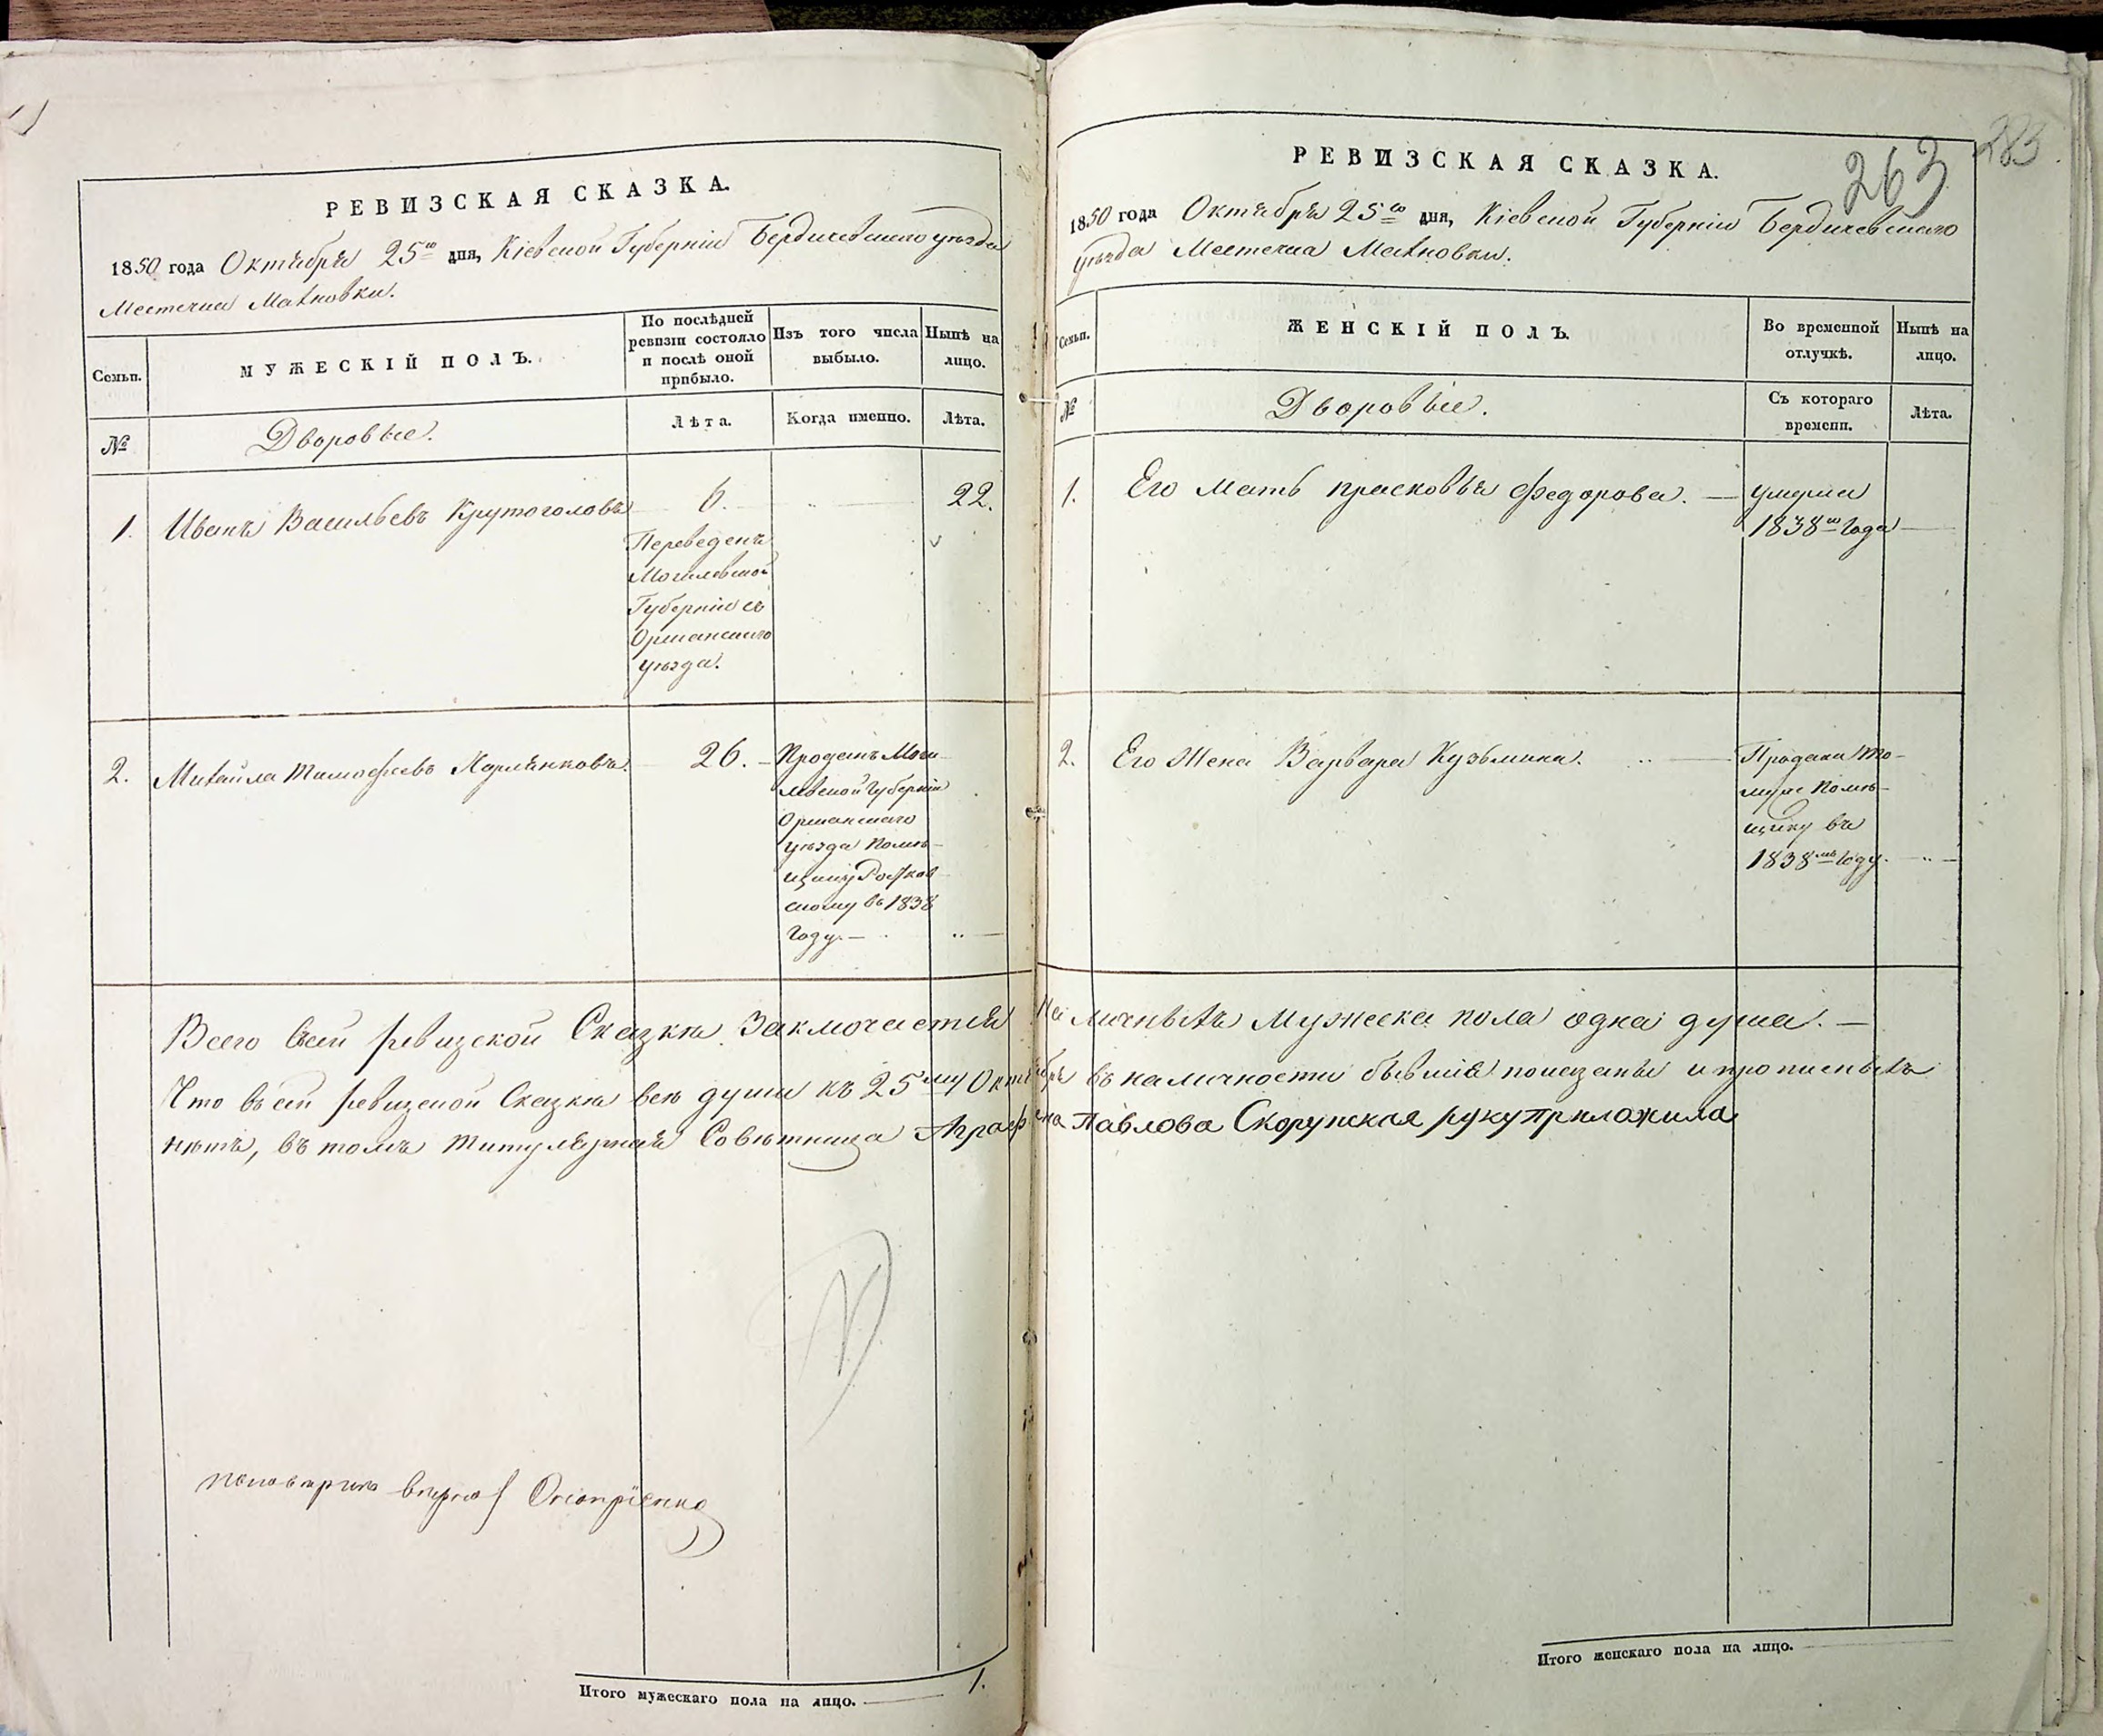 РЕВИЗСКАЯ СКАЗКА.
1850 года Октября 25го дня, Кіевской Губерніи Бердичевскаго уѣзда
Местечка Махновки.
Семьи.
МУЖЕСКІЙ ПОЛЪ.
По послѣдней
ревизіи состояло
и послѣ оной
прибыло.
Изъ того числа
выбыло.
Нынѣ на
лицо.
№
Дворовые.
Лѣта.
Когда именно.
Лѣта.
1.
Иванъ Васильевъ Крутоголовъ
6.
22.
Переведенъ
Могилевской
Губерніи съ
Оршанскаго
уѣзда.
2.
Михайла Тимофеевъ
26.
Проданъ Моги-
левской Губерніи
Оршанскаго
уѣзда Помѣ-
щику
скому въ 1838
году.
Всего въ сей ревизской Сказкѣ Заключается На
Что въ сей ревизской Сказкѣ всѣ души къ 25му Октября
нѣтъ, въ томъ Титулярная Совѣтница Аграфена
Итого мужескаго пола на лицо.
1.
263
283
РЕВИЗСКАЯ СКАЗКА.
1850 года Октября 25го дня, Кіевской Губерніи Бердичевскаго
уѣзда Местечка Махновки.
Семьи.
ЖЕНСКІЙ ПОЛЪ.
Во временной
отлучкѣ.
Нынѣ на
лицо.
№
Дворовые.
Съ котораго
времени.
Лѣта.
1.
Его Мать Прасковья Федорова.
умерла
1838го Года
2.
Его Жена Варвара Кузьмина.
Продана то-
муже Помѣ-
щику въ
1838мъ Году.
личныхъ Мужеска пола одна душа.
въ наличности бывшія показаны и прописныхъ
Павлова Скорупская руку приложила
Итого женскаго пола на лицо.